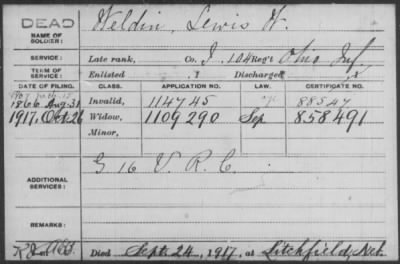 DEAD
NAME OF SOLDIER: Weldin, Lewis W.
SERVICE: Late rank, Co. I, 104 Reg't Ohio Inf.
TERM OF SERVICE: Enlisted , 1 Discharged , 1
DATE OF FILING. CLASS. APPLICATION NO. LAW. CERTIFICATE NO.
1866 Aug. 31 Invalid, 114745 88547
1917, Oct. 26 Widow, 1109290 Sep 858491
Minor,
ADDITIONAL SERVICES: G 16 V. R. C.
REMARKS:
Died Sept. 24, 1917, at Litchfield, Neb.